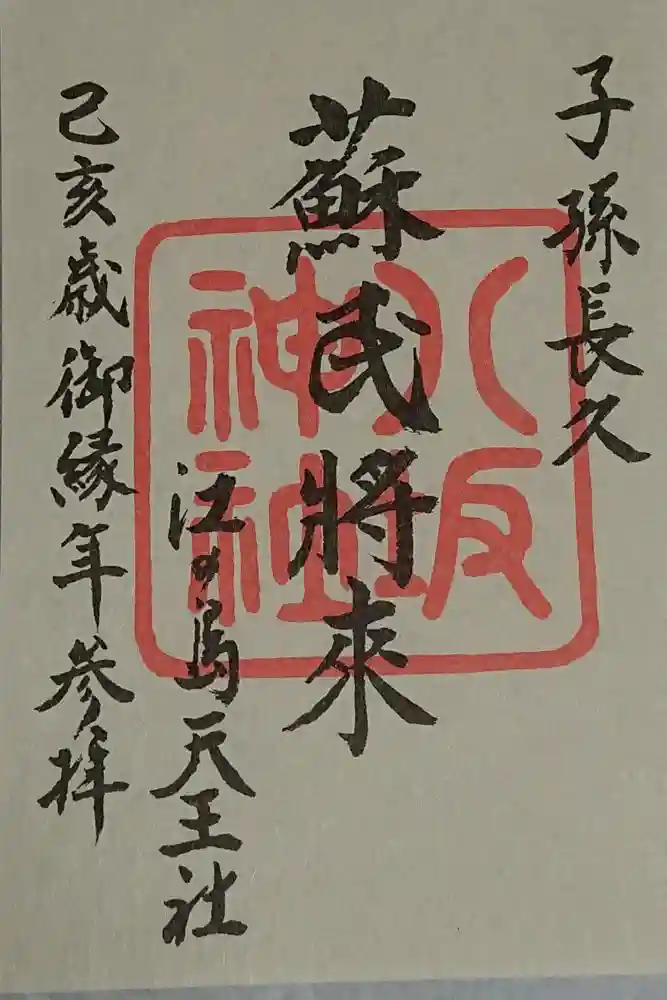 子孫長久
蘇民将来
江の島天王社
己亥歳御縁年参拝
八坂
神社